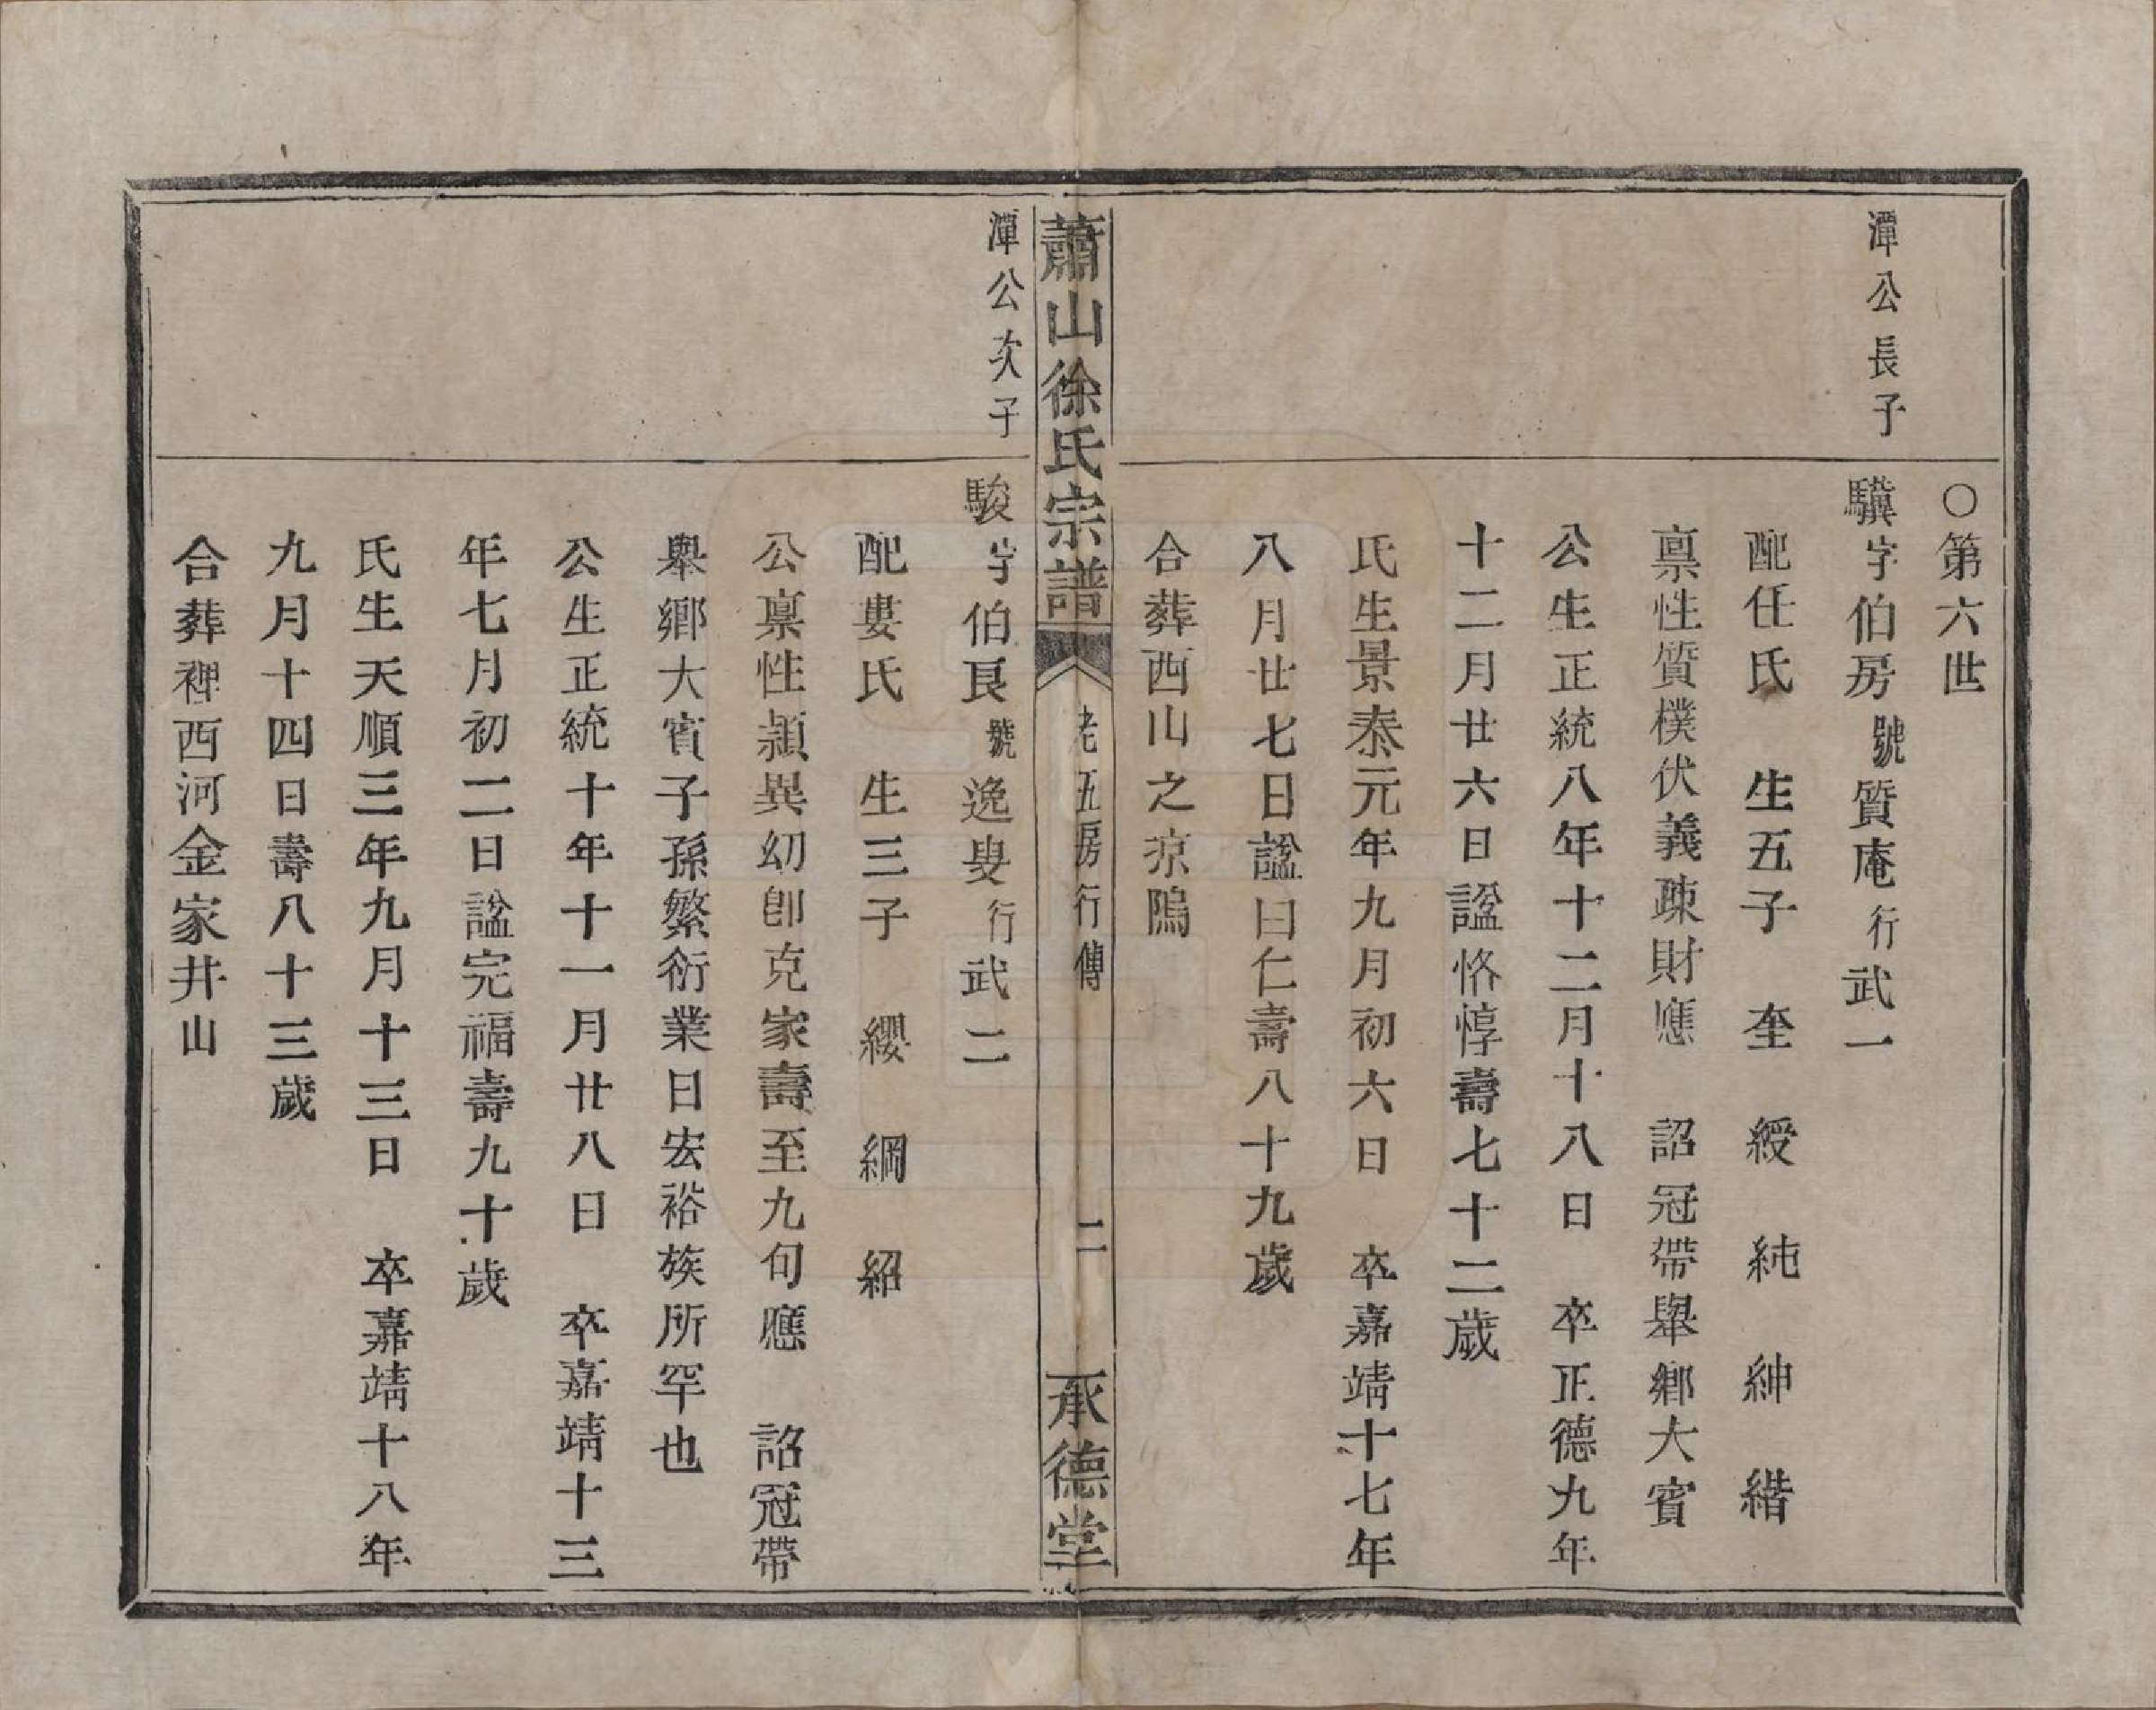 ○第六世
潭公長子
驥字伯房號質庵行武一
配任氏　生五子　奎　綬　純　紳　緒
稟性質樸伏義疎財應　詔冠帶舉鄉大賓
公生正統八年十二月十八日　卒正德九年
十二月廿六日諡恪惇壽七十二歲
氏生景泰元年九月初六日　卒嘉靖十七年
八月廿七日諡曰仁壽八十九歲
合葬西山之凉隝
蕭山徐氏宗譜　老五房行傳　二　承德堂
潭公次子
駿字伯良號逸叟行武二
配婁氏　生三子　纓　綱　紹
公稟性頴異幼卽克家壽至九旬應　詔冠帶
舉鄉大賓子孫繁衍業日宏裕族所罕也
公生正統十年十一月廿八日　卒嘉靖十三
年七月初二日諡完福壽九十歲
氏生天順三年九月十三日　卒嘉靖十八年
九月十四日壽八十三歲
合葬裡西河金家井山